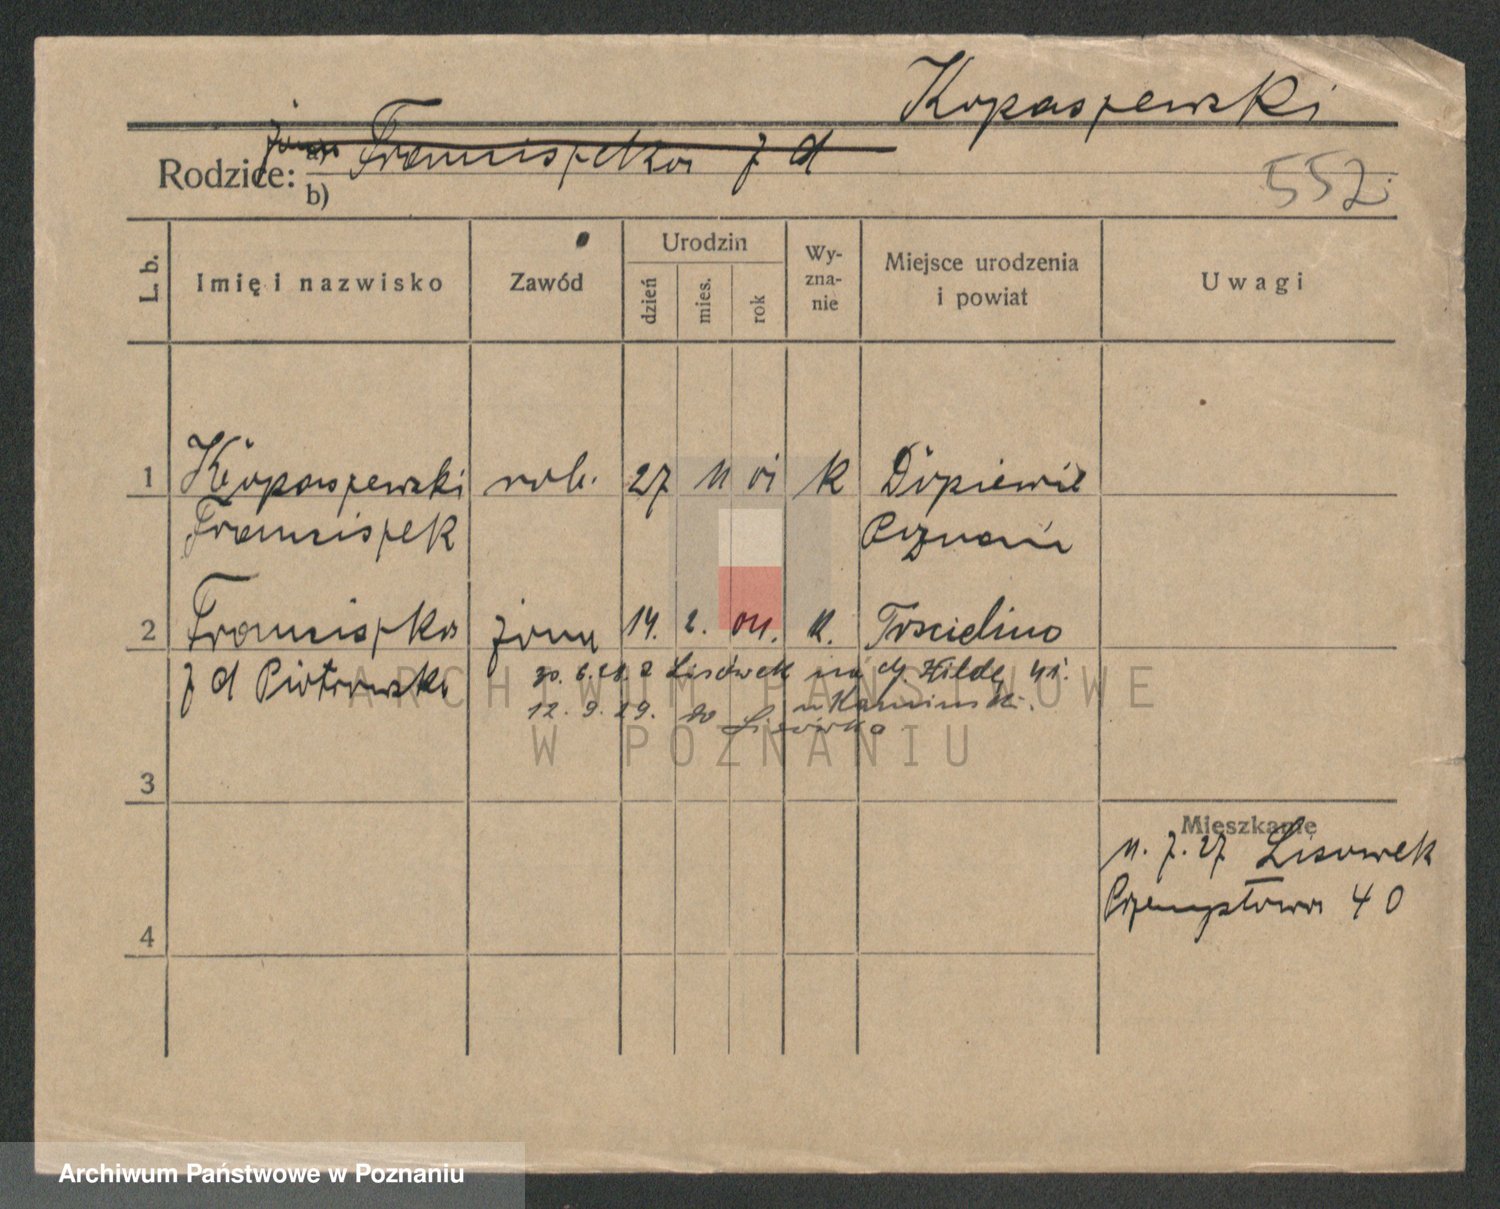 Kopaszewski
Rodzice: a) Franciszka z d
b)
552.
L. b.
Imię i nazwisko
Zawód
Urodzin
dzień
mies.
rok
Wy-
zna-
nie
Miejsce urodzenia
i powiat
Uwagi
1 Kopaszewski rob. 27 11 01 k Dopiewie
Franciszek Poznań
2 Franciszka żona 14. 2. 04. k. Trscielino
z d Piotrowska 30. 6. 28. Lisówek
12. 9. 29. do Lisówka
3
4
Mieszkanie
11. 7. 27 Lisowek
Przemysłowa 40
ARCHIWUM PAŃSTWOWE
W POZNANIU
Archiwum Państwowe w Poznaniu